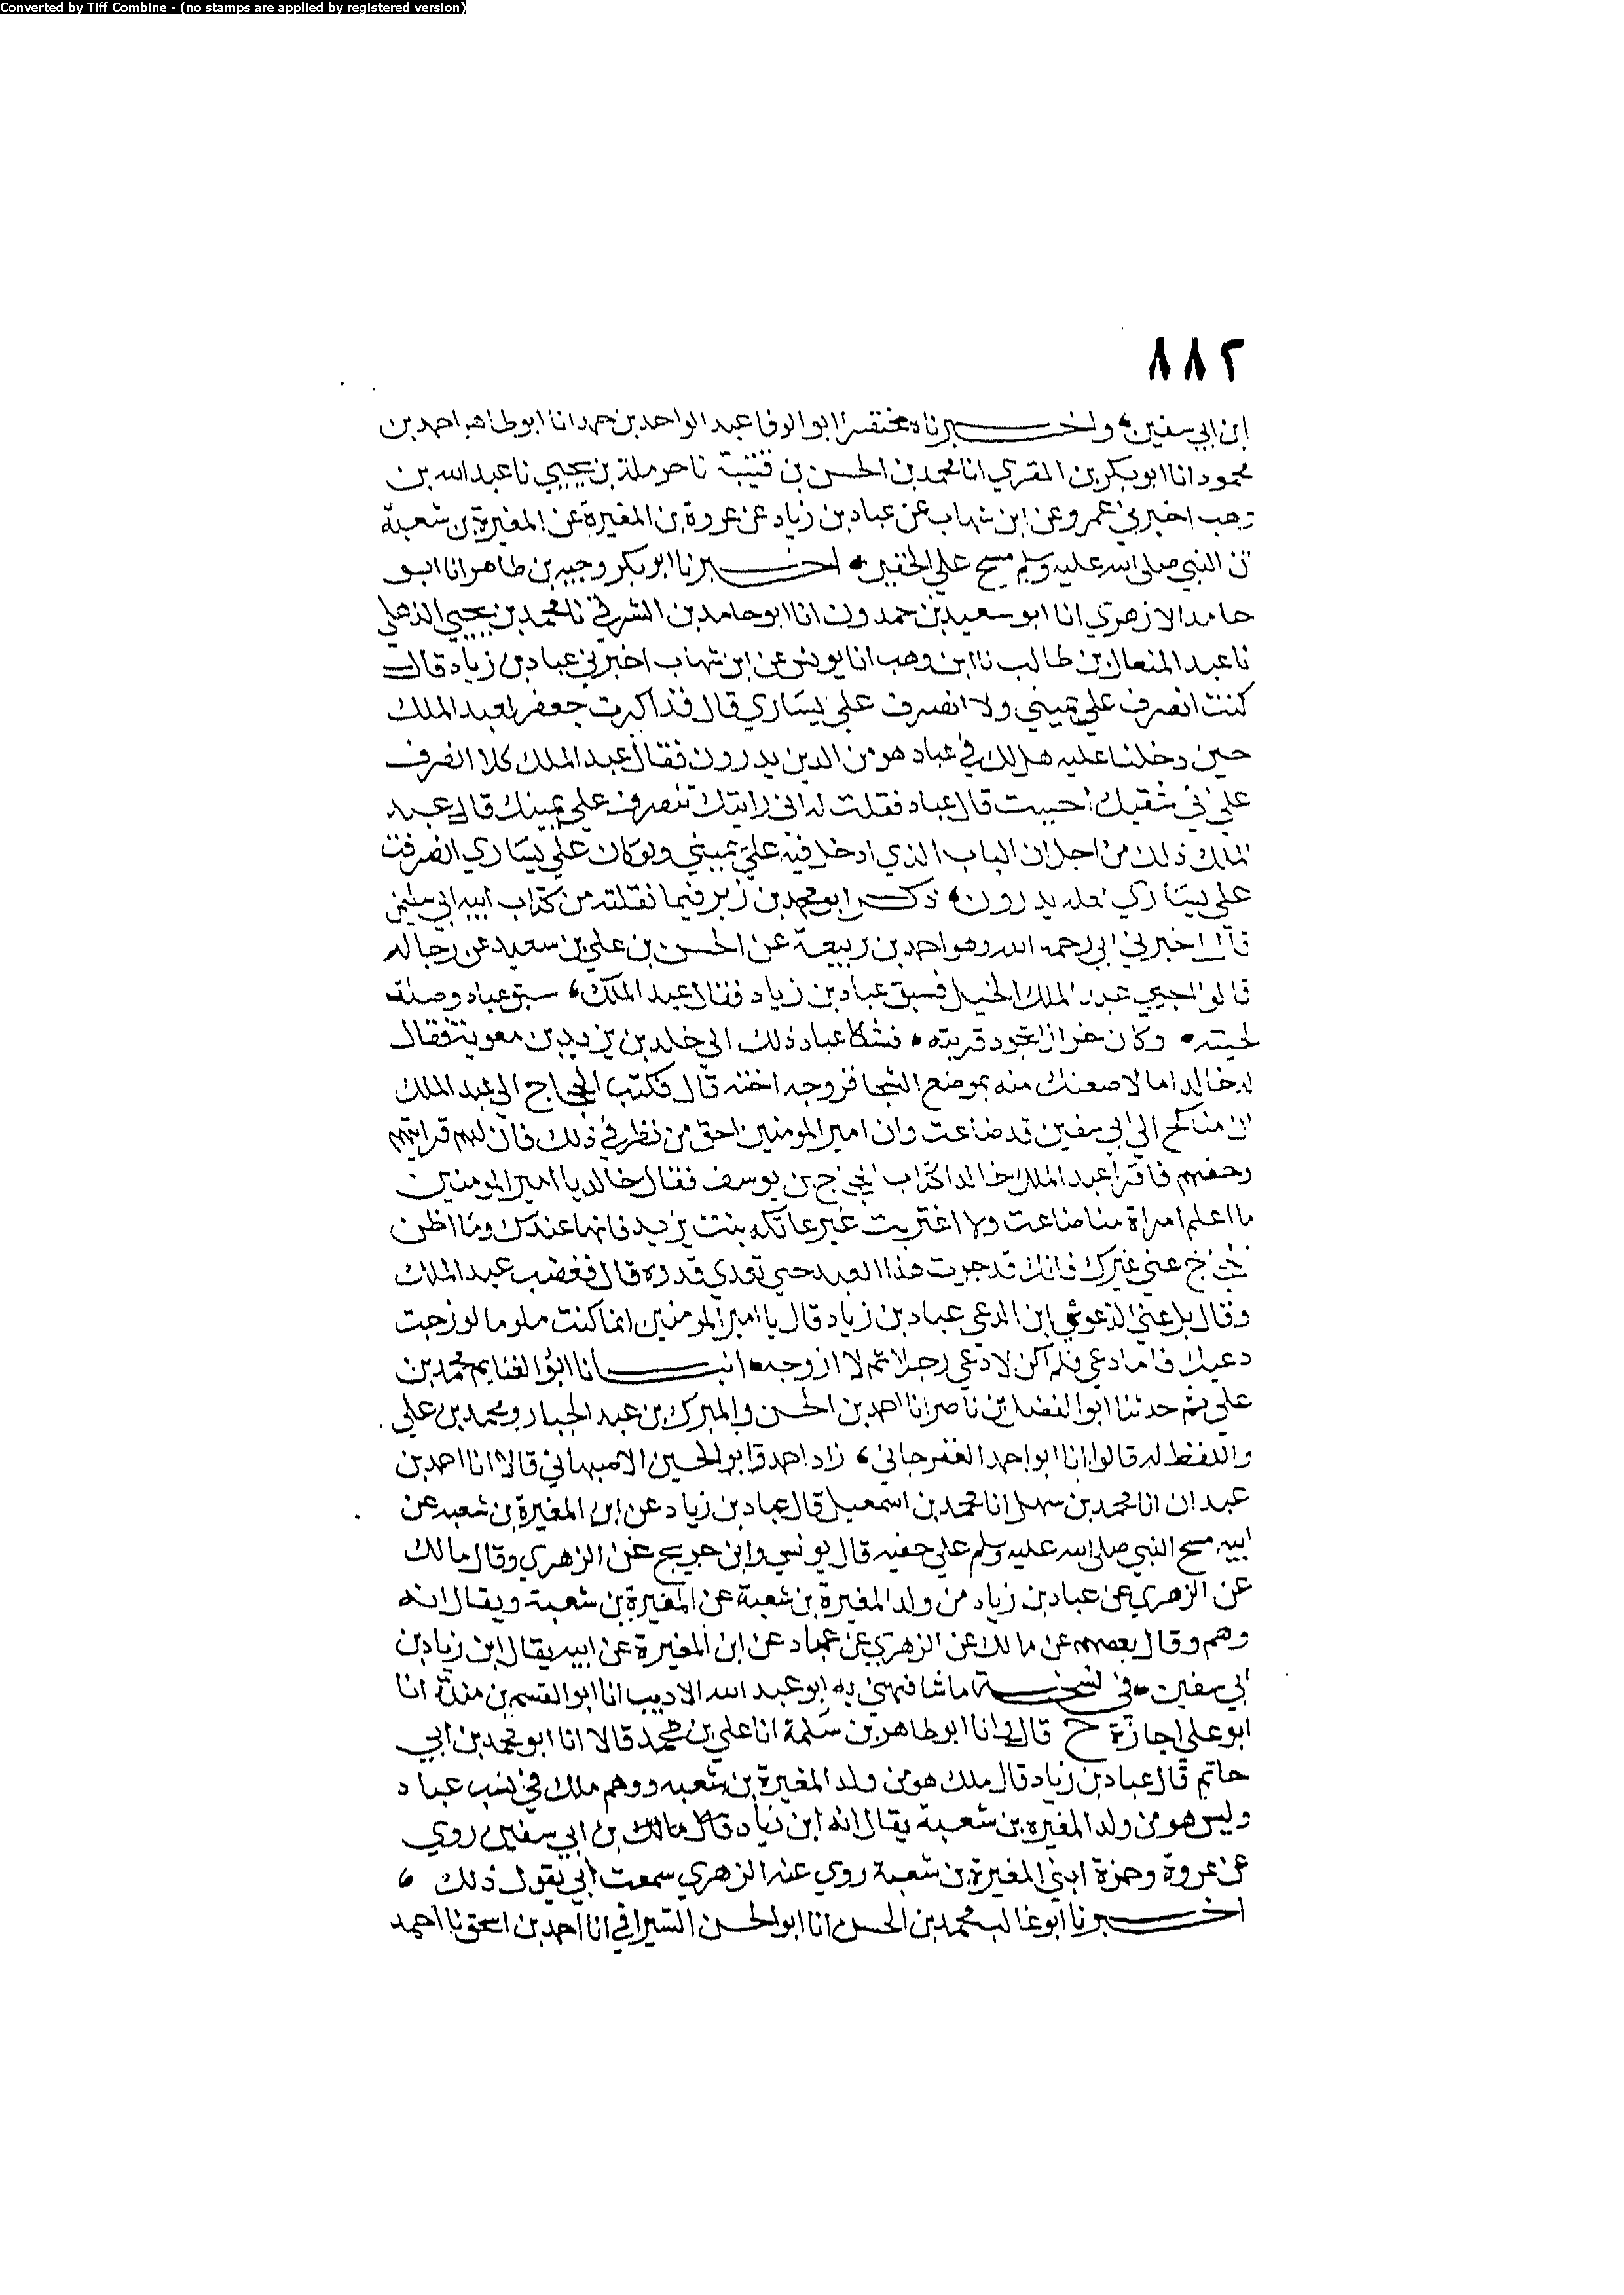 Converted by Tiff Combine - (no stamps are applied by registered version)
٨٨٢
ابن ابي سفين، واخبرناه مختصرا ابو الوفا عبد الواحد بن حمد انا ابو طاهر احمد بن
محمود انا ابو بكر بن المقري انا محمد بن الحسن بن قتيبة نا حرملة بن يحيي نا عبد الله بن
وهب اخبرني عمرو عن ابن شهاب عن عباد بن زياد عن عروة بن المغيرة عن المغيرة بن شعبة
ان النبي صلى الله عليه وسلم مسح علي الخفين اخبرنا ابو بكر وجيه بن طاهر انا ابو
حامد الازهري انا ابو سعيد بن حمدون انا ابو حامد بن الشرقي نا محمد بن يحيي الذهلي
نا عبد المتعال بن طالب نا ابن وهب انا يونس عن ابن شهاب اخبرني عباد بن زياد قال
كنت انصرف علي يميني ولا انصرف علي يساري قال فذاكرت جعفر لعبد الملك
حين دخلنا عليه هل لك في عباد هو من الدين يدرون فقال عبد الملك كلا انصرف
علي اي شقيك احببت قال عباد فقلت له اني رايتك تنصرف علي يمينك قال عبد
الملك ذلك من اجل ان الباب الذي ادخل فيه علي يميني ولو كان علي يساري انصرفت
علي يساري يدرون، ذكر ابو محمد بن زبر فيما نقلته من كتاب ابيه ابي سليمن
قال اخبرني ابي رحمه الله وهو احمد بن ربيعة عن الحسن بن علي بن سعيد عن رجاله
قالوا اجري عبد الملك الخيل فسبق عباد بن زياد فقال عبد الملك، سبق عباد وصلت
لحيته وكان خرازا تجود قربته، فشكا عباد ذلك الي خلد بن يزيد بن معوية فقال
له خالد اما لاضعنك منه بموضع الشجا فزوجه اخته قال فكتب الحجاج الي عبد الملك
ان مناكح ال ابي سفين قد ضاعت وان امير المومنين احق من نظر في ذلك فان لهم قرابتهم
وحقهم فاقرا عبد الملك خالدا كتاب الحجاج بن يوسف فقال خالد يا امير المومنين
ما اعلم امراة منا ضاعت ولا اغتربت غير عاتكه بنت يزيد فانها عندك وما اظن
الحجاج عني غيرك فانك قد جرت هذا العبد حتي تعدي قدره قال فغضب عبد الملك
وقال بل عني الدعي ابن الدعي عباد بن زياد قال يا امير المومنين انما كنت ملوما لو زوجت
دعيك فاما دعي فلم اكن لادعي رجلا ثم لا ازوجه انبانا ابو الغنايم محمد بن
علي ثم حدثنا ابو الفضل بن ناصر انا احمد بن الحسن والمبرك بن عبد الجبار ومحمد بن علي
واللفظ له قالوا انا ابو احمد الغندجاني، زاد احمد وابو الحسين الاصبهاني قالا انا احمد بن
عبدان انا محمد بن سهل انا محمد بن اسمعيل قال عباد بن زياد عن ابن المغيرة بن شعبه عن
ابيه مسح النبي صلى الله عليه وسلم علي خفيه قال يونس وابن جريج عن الزهري وقال مالك
عن الزهري عن عباد بن زياد من ولد المغيرة بن شعبة عن المغيرة بن شعبة ويقال انه
وهم وقال بعضهم عن مالك عن الزهري عن عباد عن ابن المغيرة عن ابيه يقال ابن زياد بن
ابي سفين في نسخة ما شافهني به ابو عبد الله الاديب انا ابو القسم بن مندة انا
ابو علي اجازة ح قال وانا ابو طاهر بن سلمة انا علي بن محمد قالا انا ابو محمد بن ابي
حاتم قال عباد بن زياد قال ملك هو من ولد المغيرة بن شعبه ووهم ملك في نسب عباد
وليس هو من ولد المغيرة بن شعبة يقال انه ابن زياد بن ابي سفين روي
عن عروة وحمزة ابني المغيرة بن شعبة روي عنه الزهري سمعت ابي يقول ذلك،
اخبرنا ابو غالب محمد بن الحسن انا ابو الحسن السيرافي انا احمد بن اسحق نا احمد